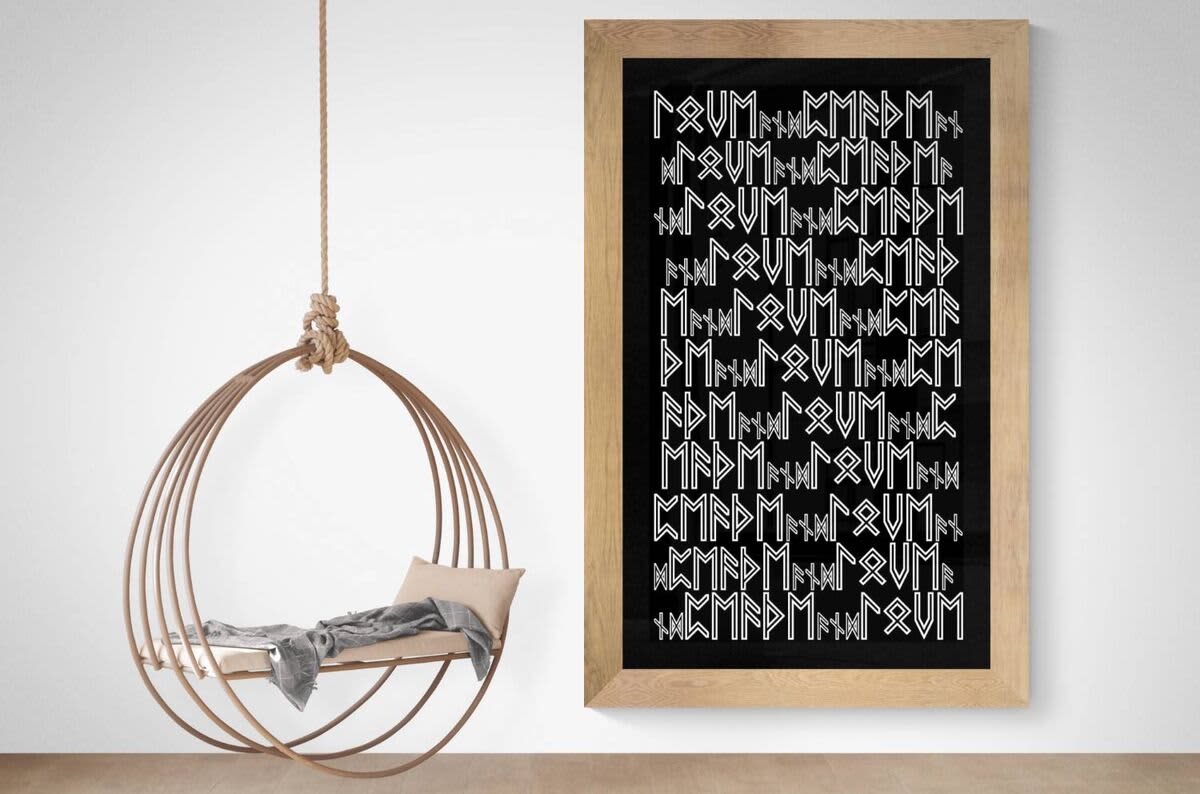 ᛚᛟᚢᛖᚨᚾᛞᛈᛖᚨᚦᛖᚨᚾ
ᛞᛚᛟᚢᛖᚨᚾᛞᛈᛖᚨᚦᛖᚨ
ᚾᛞᛚᛟᚢᛖᚨᚾᛞᛈᛖᚨᚦᛖ
ᚨᚾᛞᛚᛟᚢᛖᚨᚾᛞᛈᛖᚨᚦ
ᛖᚨᚾᛞᛚᛟᚢᛖᚨᚾᛞᛈᛖᚨ
ᚦᛖᚨᚾᛞᛚᛟᚢᛖᚨᚾᛞᛈᛖ
ᚨᚦᛖᚨᚾᛞᛚᛟᚢᛖᚨᚾᛞᛈ
ᛖᚨᚦᛖᚨᚾᛞᛚᛟᚢᛖᚨᚾᛞ
ᛈᛖᚨᚦᛖᚨᚾᛞᛚᛟᚢᛖᚨᚾ
ᛞᛈᛖᚨᚦᛖᚨᚾᛞᛚᛟᚢᛖᚨ
ᚾᛞᛈᛖᚨᚦᛖᚨᚾᛞᛚᛟᚢᛖ